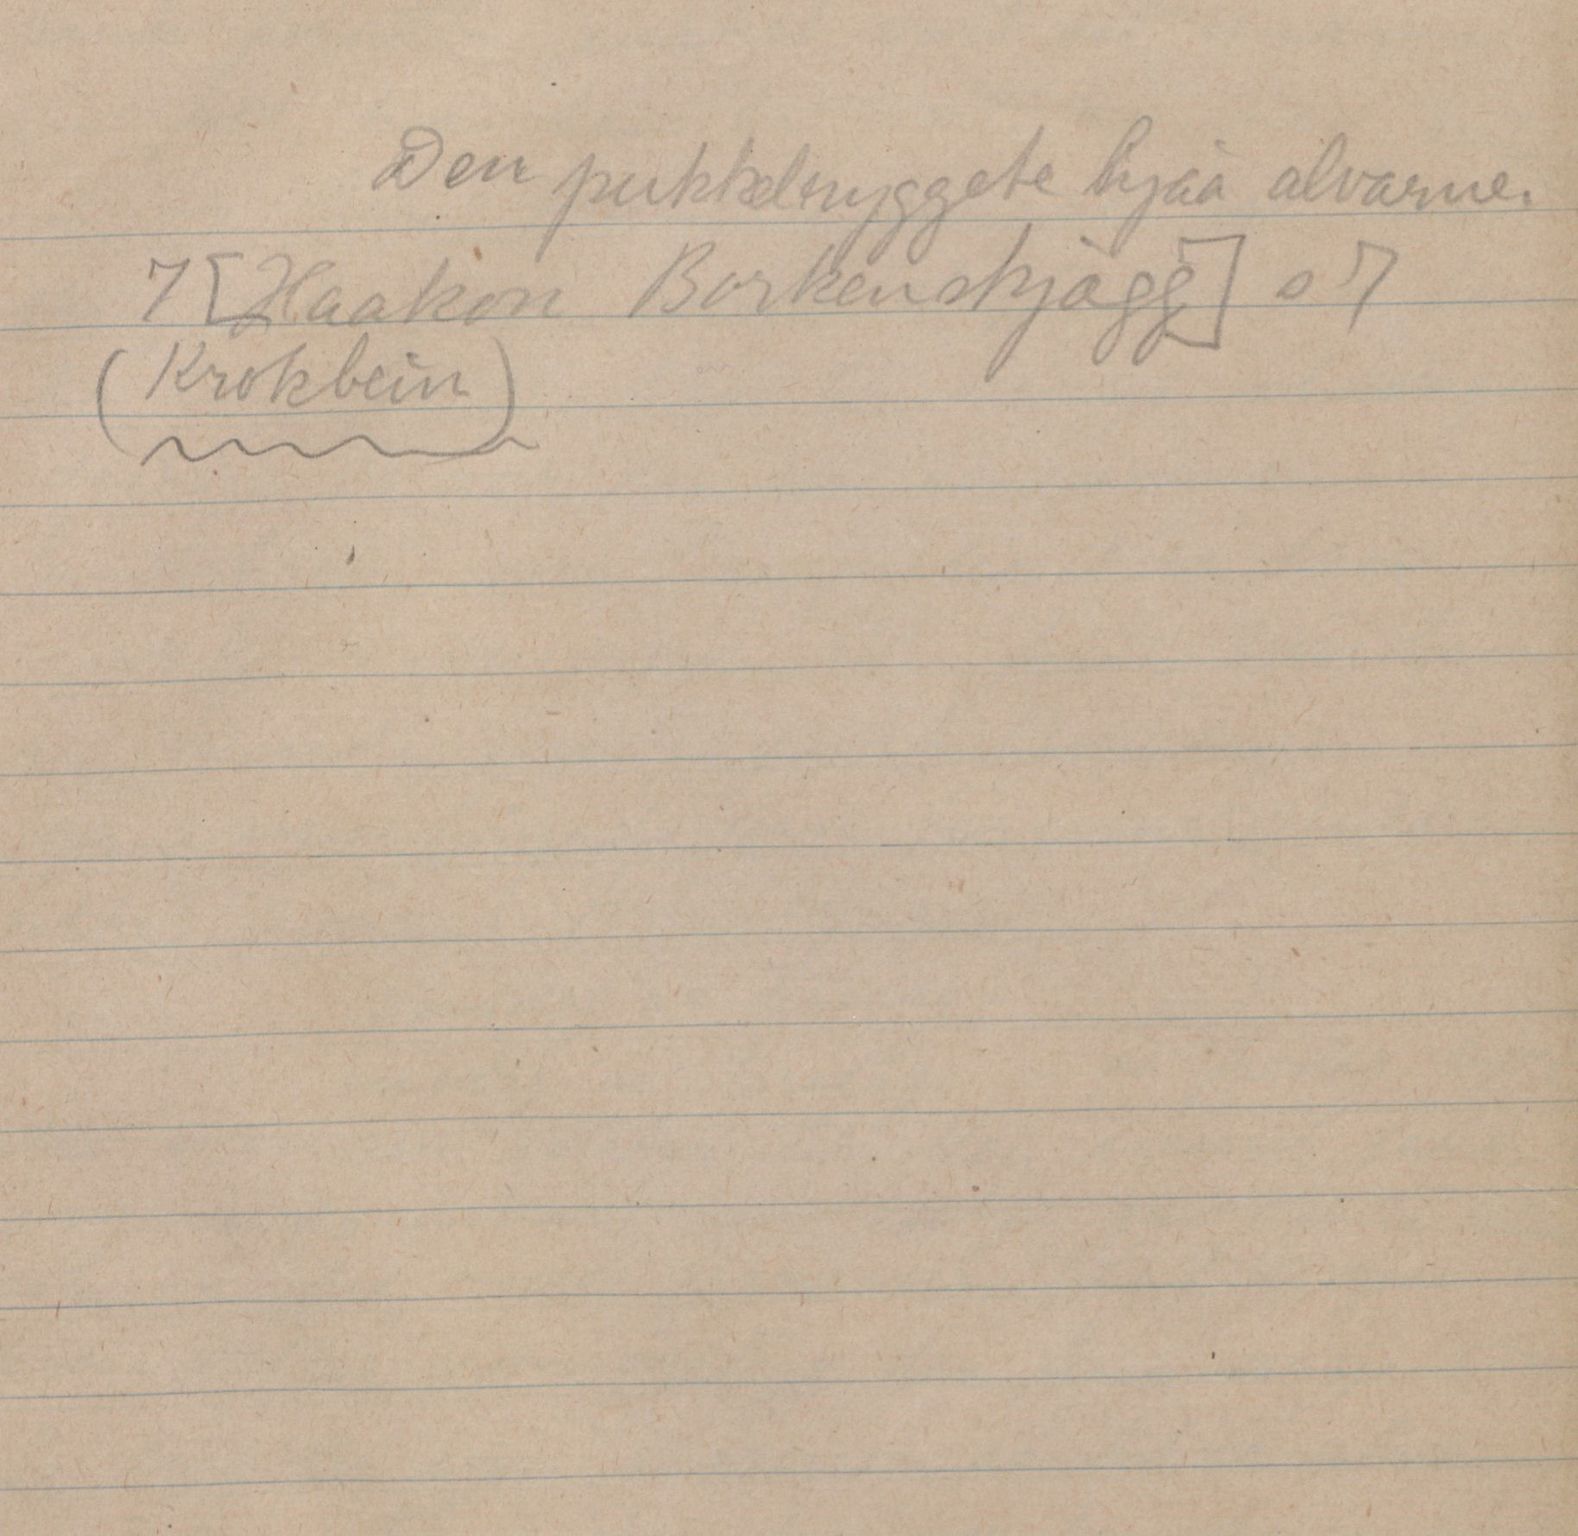 Den pukkelryggete hjaa alvarne.
7 [Haakon Borkenskjägg] s 7
(Krokbein)